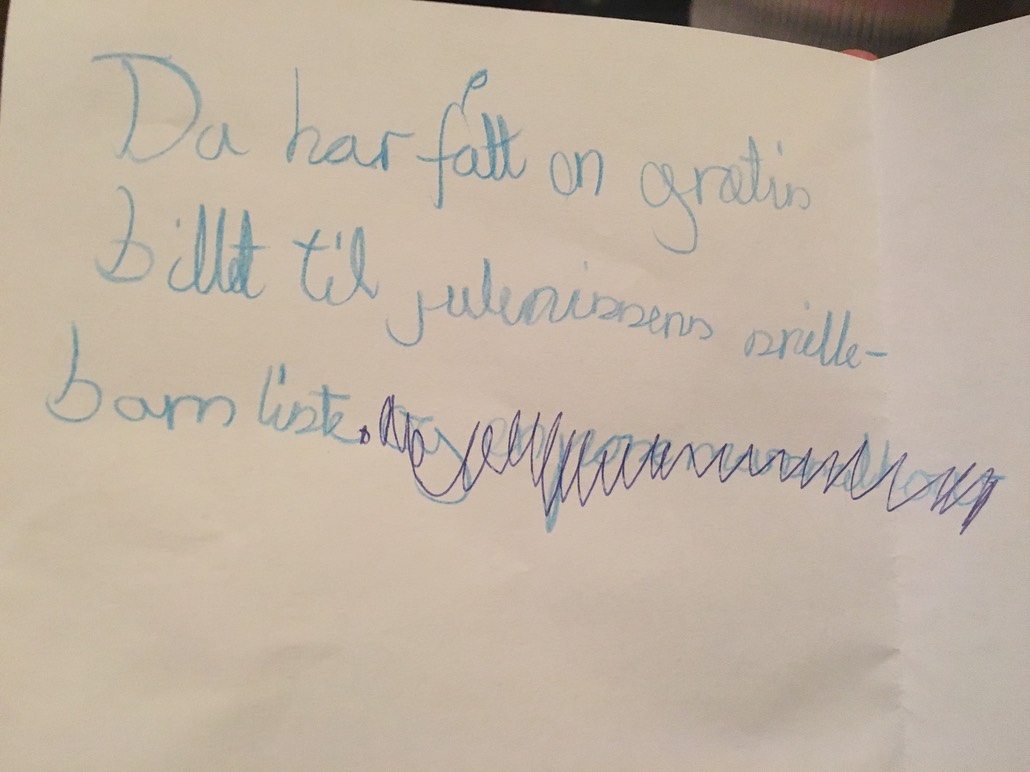 Da har fått en gratis
billet til julenissens snille-
barn liste.